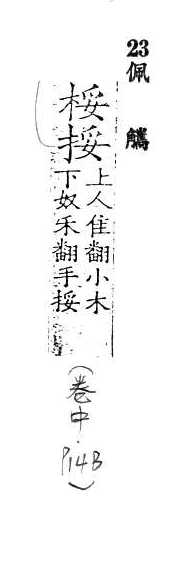 23 佩觿
桵挼
上人隹翻小木
下奴禾翻手挼
(卷中.P14B)